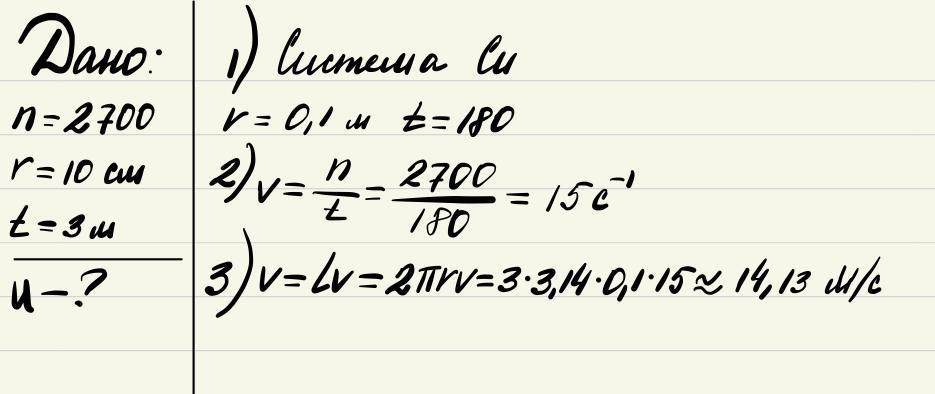 Дано:
n = 2700
r = 10 см
t = 3 м
u - ?
1) Система Си
r = 0,1 м t = 180
2) v = n/t = 2700/180 = 15 с⁻¹
3) v = Lv = 2πrv = 3·3,14·0,1·15 ≈ 14,13 м/с